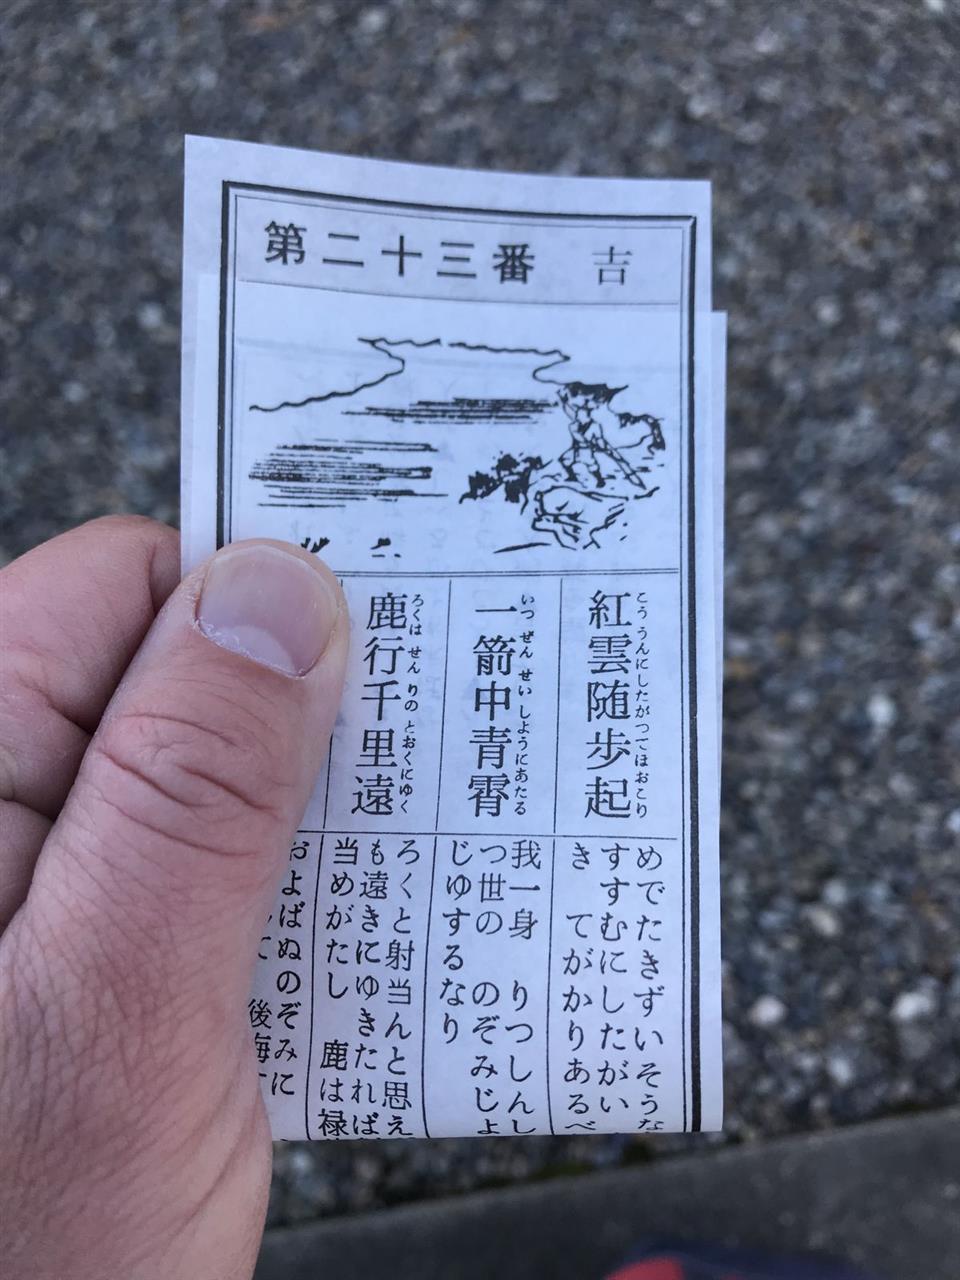 第二十三番 吉
紅雲随歩起
こううんにしたがつてほおこり
一箭中青霄
いつぜんせいしようにあたる
鹿行千里遠
ろくはせんりのとおくにゆく
めでたきずいそうな
すすむにしたがい
き てがかりあるべ
我一身 りつしんし
つ世の のぞみじよ
じゆするなり
ろくと射当んと思え
も遠きにゆきたれば
当めがたし 鹿は禄
およばぬのぞみに
後悔